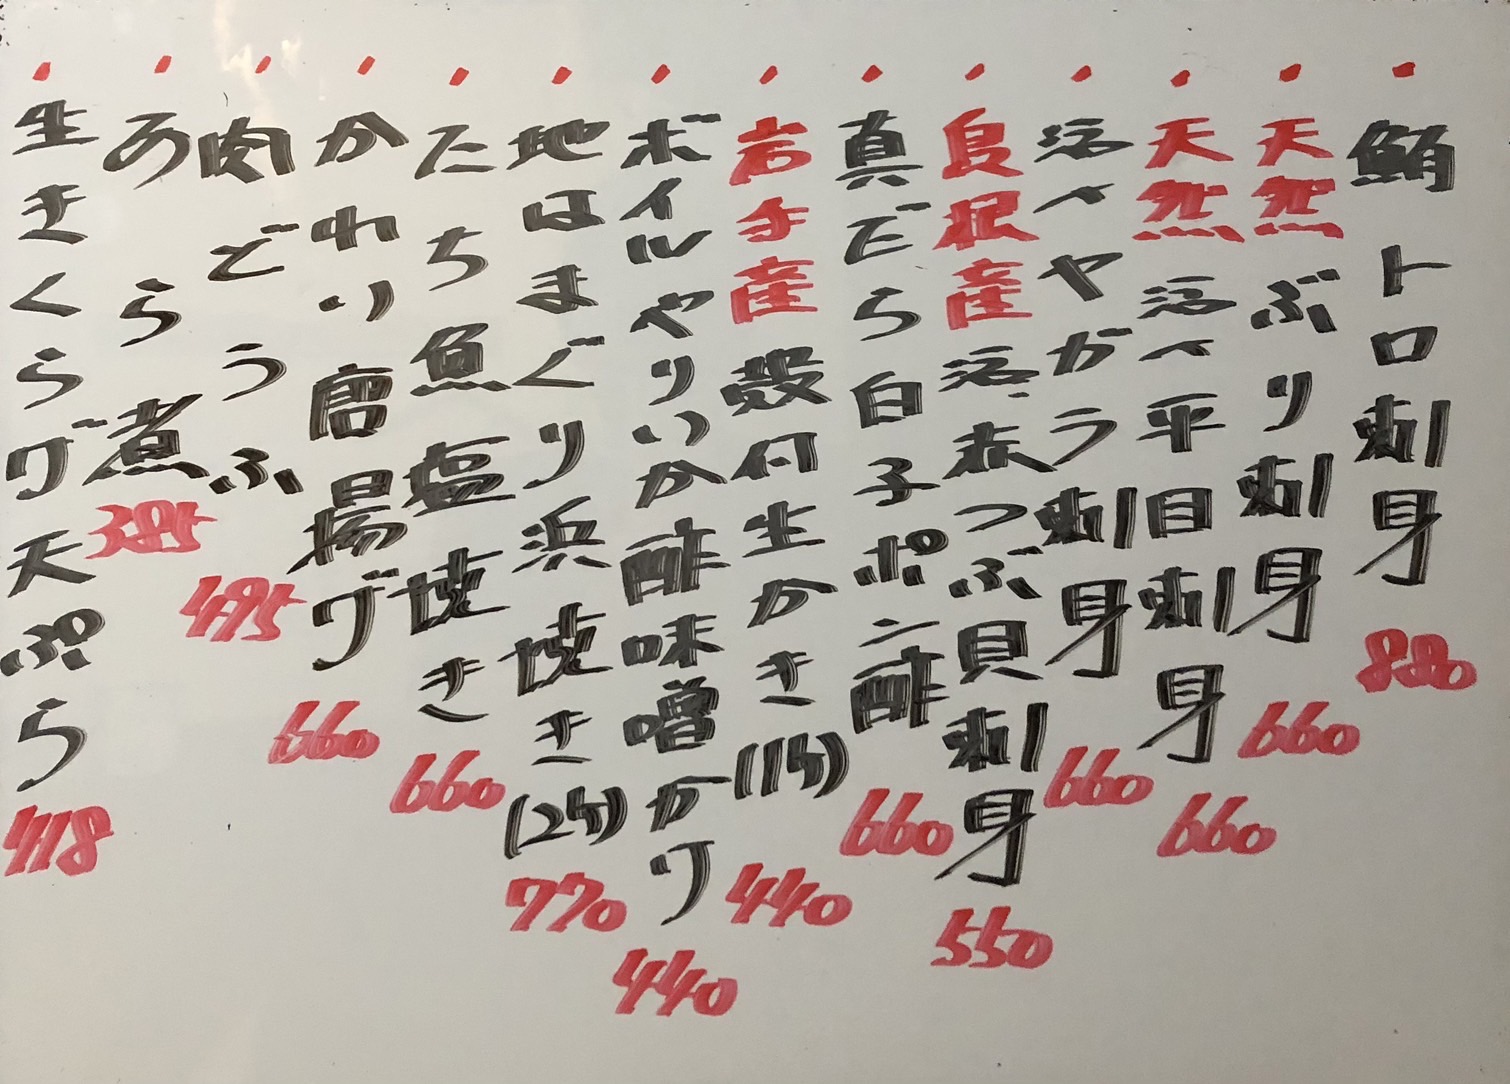 鮪トロ刺身 880
天然ぶり刺身 660
天然活〆平目刺身 660
活〆ヤガラ刺身 660
良根産活赤つぶ貝刺身 550
真だら白子ポン酢 660
岩手産殻付生かき(1ケ) 440
ボイルやりいか酢味噌かけ 440
地はまぐり浜焼き(2ケ) 770
たち魚塩焼き 660
かわり唐揚げ 660
肉どうふ 495
あら煮 385
生きくらげ天ぷら 418